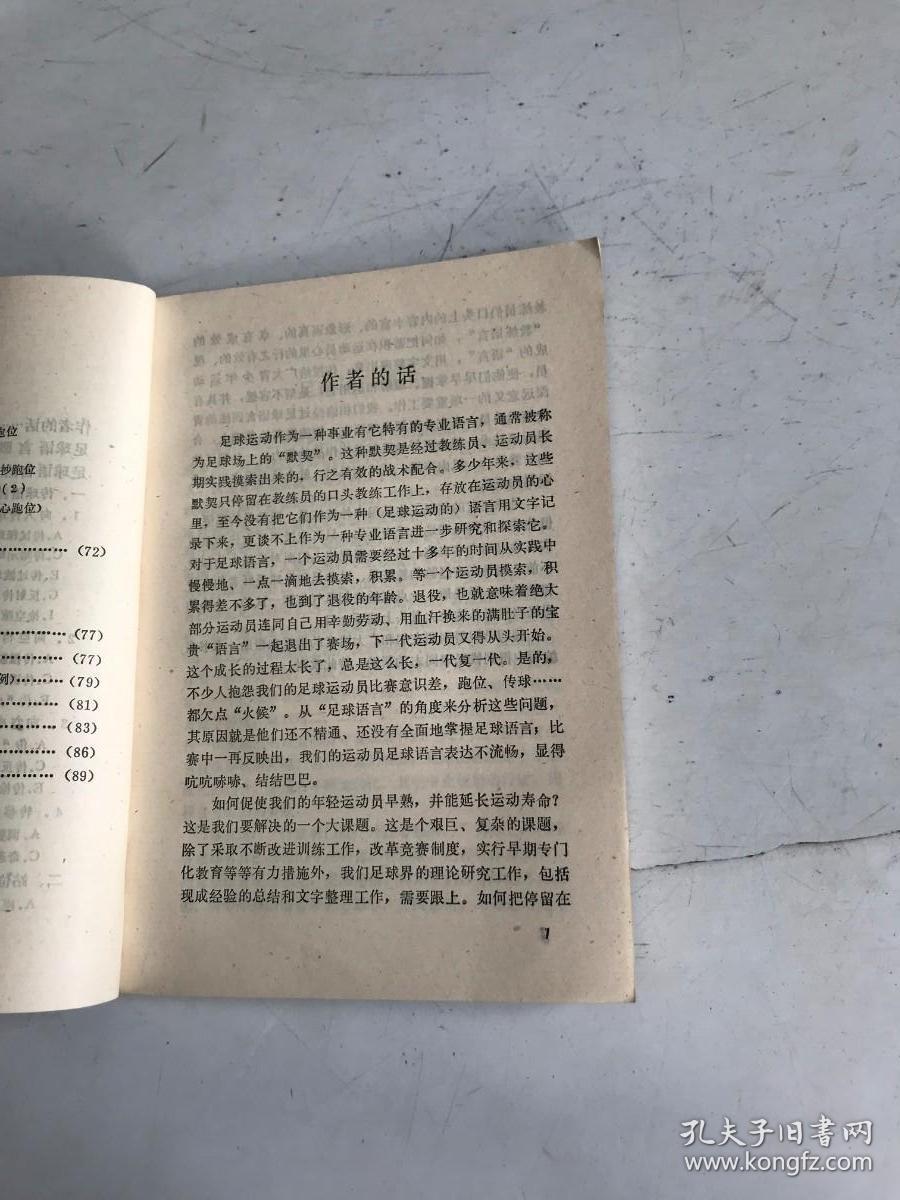 跑位
抄跑位
(2)
心跑位)
(72)
(77)
(77)
例)……(79)
(81)
(83)
(86)
(89)
作者的话
足球运动作为一种事业有它特有的专业语言,通常被称
为足球场上的“默契”。这种默契是经过教练员、运动员长
期实践摸索出来的,行之有效的战术配合。多少年来,这些
默契只停留在教练员的口头教练工作上,存放在运动员的心
里,至今没有把它们作为一种(足球运动的)语言用文字记
录下来,更谈不上作为一种专业语言进一步研究和探索它。
对于足球语言,一个运动员需要经过十多年的时间从实践中
慢慢地、一点一滴地去摸索,积累。等一个运动员摸索,积
累得差不多了,也到了退役的年龄。退役,也就意味着绝大
部分运动员连同自己用辛勤劳动、用血汗换来的满肚子的宝
贵“语言”一起退出了赛场,下一代运动员又得从头开始。
这个成长的过程太长了,总是这么长,一代复一代。是的,
不少人抱怨我们的足球运动员比赛意识差,跑位、传球……
都欠点“火候”。从“足球语言”的角度来分析这些问题,
其原因就是他们还不精通、还没有全面地掌握足球语言;比
赛中一再反映出,我们的运动员足球语言表达不流畅,显得
吭吭哧哧、结结巴巴。
如何促使我们的年轻运动员早熟,并能延长运动寿命?
这是我们要解决的一个大课题。这是个艰巨、复杂的课题,
除了采取不断改进训练工作,改革竞赛制度,实行早期专门
化教育等等有力措施外,我们足球界的理论研究工作,包括
现成经验的总结和文字整理工作,需要跟上。如何把停留在
1
孔夫子旧书网
www.kongfz.com